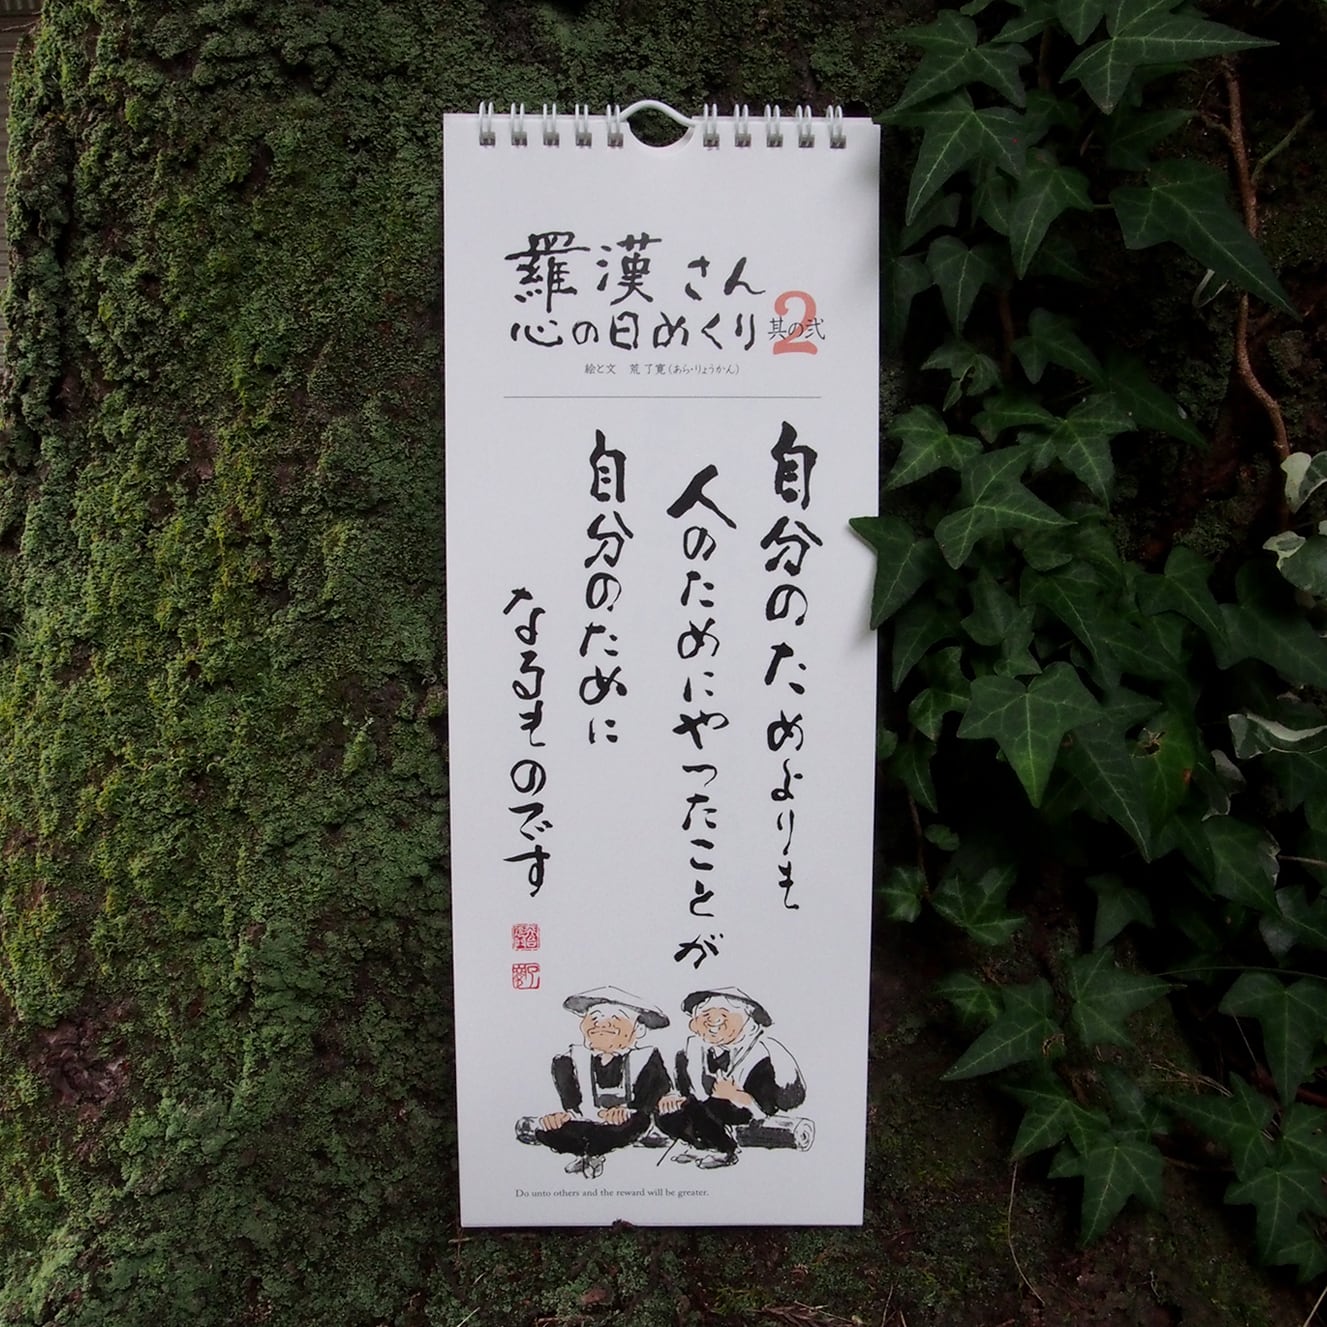 羅漢さん
心の日めくり 其の弐 2
絵と文 荒 了寛(あら・りょうかん)
自分のためよりも
人のためにやったことが
自分のために
なるものです
Do unto others and the reward will be greater.